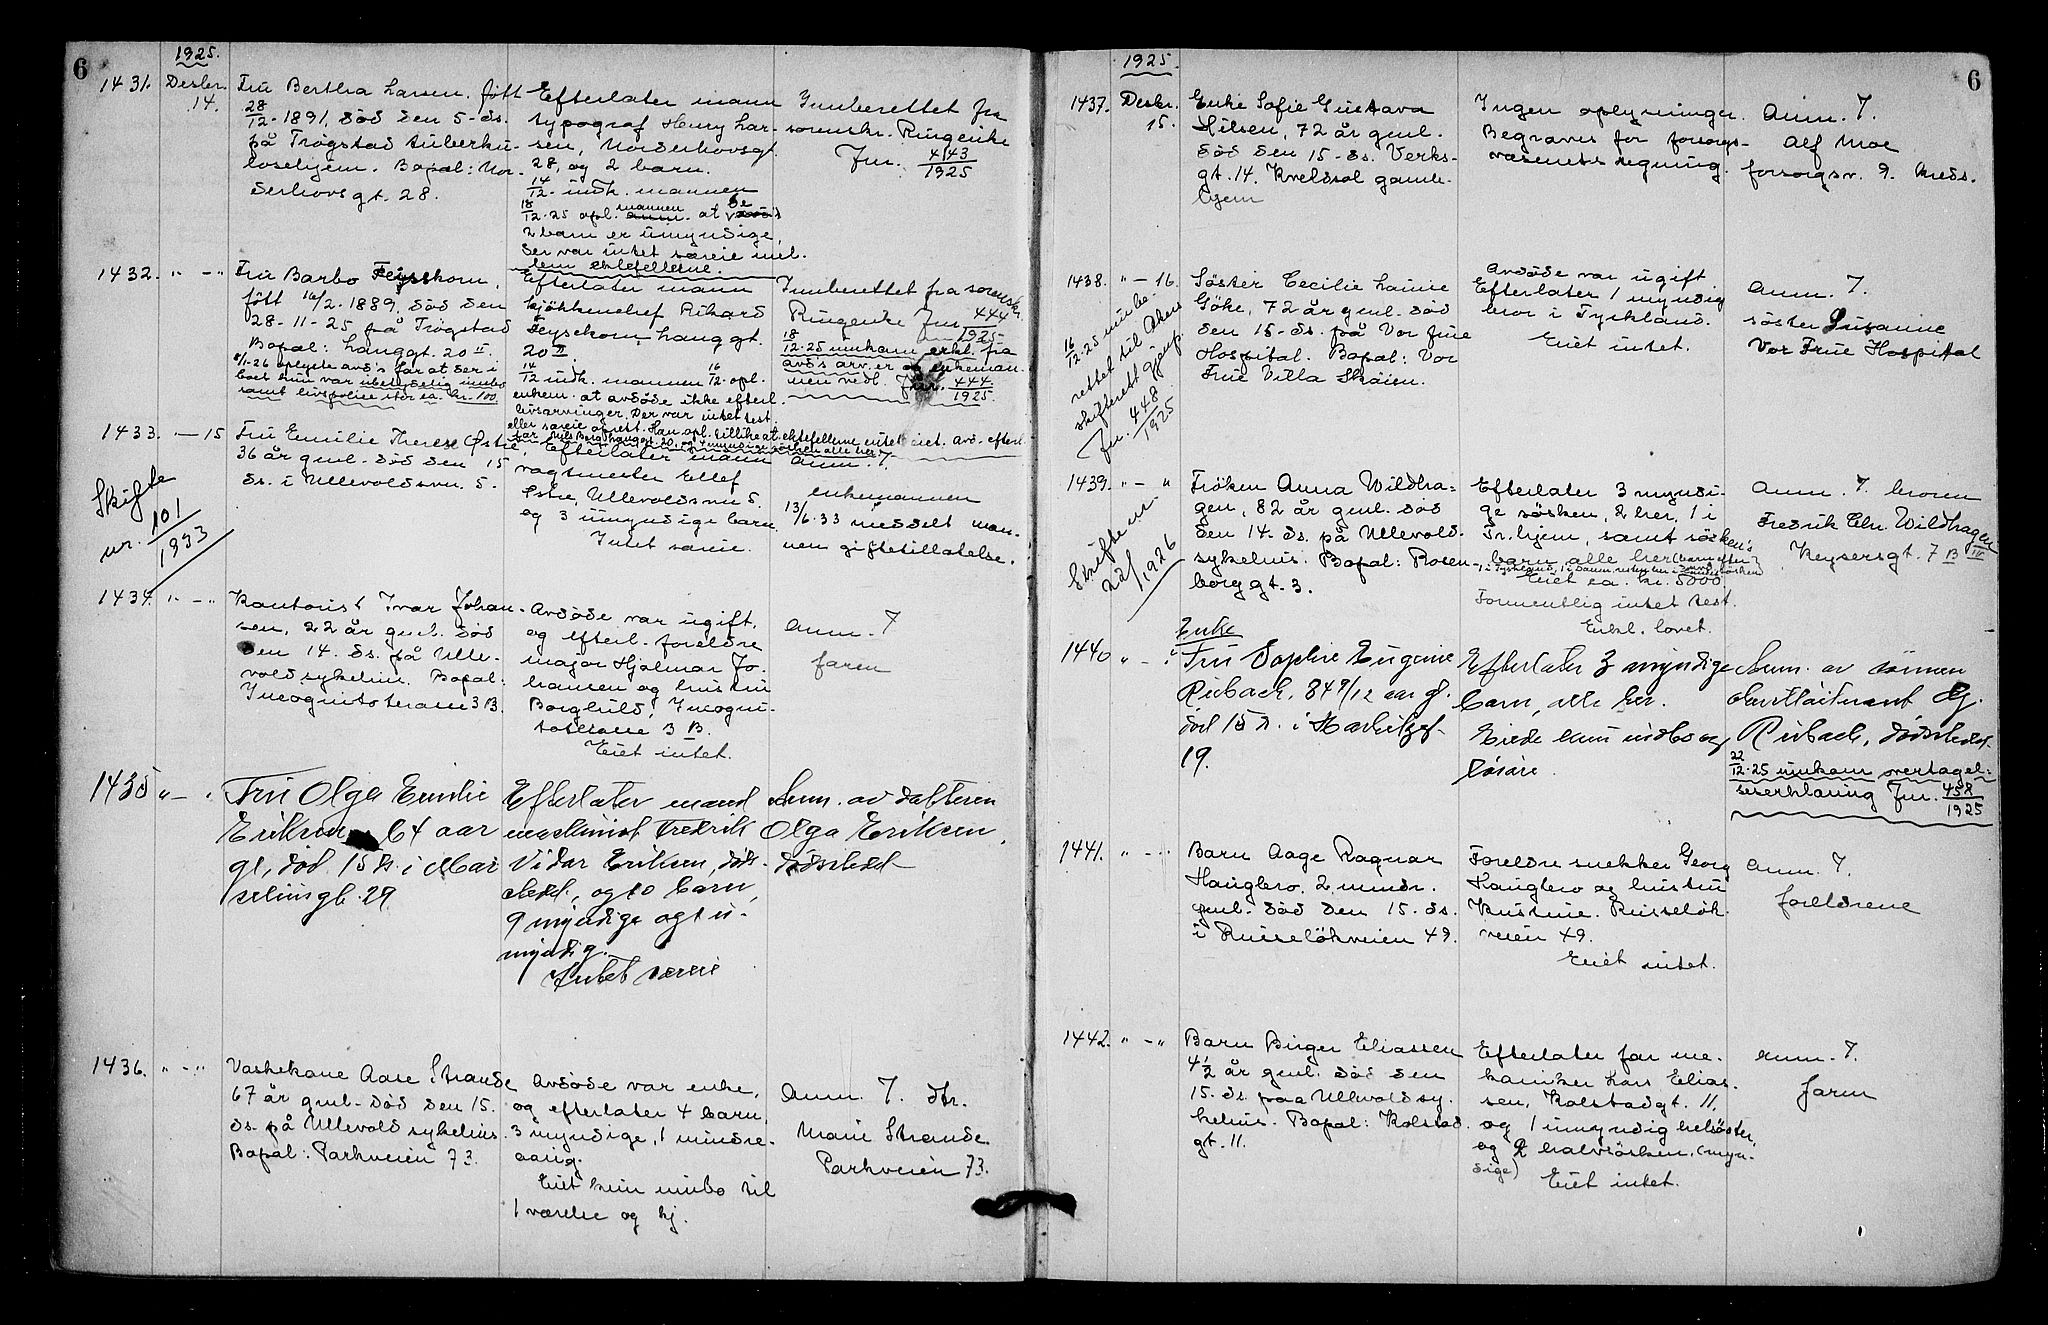 6
1925.
1431. Desbr. 14.
Fru Bertha Larsen, født
28/12-1891, död den 5-ds.
på Trögstad tuberku-
losehjem. Bopal: Nor-
derhovsgt 28.
Efterlater mann
typograf Henry Lar-
sen, Norderhovsgt
28, og 2 barn.
14/12- indk. mannen
18/12-25 opl. mannen at de
2 barn er umyndige,
der var intet særeie mel-
lem ektefellerne.
Innberettet fra
sorenskr. Ringerike
Jnr. 4143/1925
1432. " - "
Fru Barbo Feysekorn,
født 14/2-1889, död den
28-11-25 på Trögstad
Bopal: Langgt. 20 II.
8/1-26 oplyste avd's far at der i
boet kun var ubetydelig innbo
samt livspolise stor ca. kr. 100
Efterlater mann
kjökkenchef Rikard
Feysekorn, Langgt.
20 II.
14/12 indk. mannen 16/12 opl.
enkem. at avdöde ikke efterl.
livsarvinger. Der var intet test.
eller særeie oprett. Han opl. tillike at ektefellerne intet eiet. avd. efterl.
far Nils Berg Langgt. 20, og 4 myndige söken alle her
Innberettet fra sorenskr.
Ringerike Jnr. 444/1925
18/12-25 innkom erkl. fra
avd's arv. er at enkeman-
nen vedl. Jnr. 444/1925.
1433. " - 15
Fru Emilie Therese Østie,
36 år gml. död den 15
ds. i Ullevoldsvn. 5.
Skifte
nr. 101/1933
Efterlater mann
vagtmester Ellef
Østie, Ullevoldsvn 5
og 3 umyndige barn.
Intet særeie.
Anm. 7.
enkemannen
13/6-33 meddelt man-
nen giftetillatelse.
1434. " - "
Kontorist Ivar Johan-
sen, 22 år gml. död
den 14. ds. på Ulle-
vold sykehus. Bopal:
Incognitoterasse 3 B.
Avdöde var ugift,
og efterl. foreldre
major Hjalmar Jo-
hansen og hustru
Borghild, Incogni-
toterasse 3 B.
Eiet intet.
Anm. 7
faren
1435 " - "
Fru Olga Emilie
Eriksen, 64 aar
gl, död 15 ds. i Mar
seliusgt. 29
Efterlater mand
maskinist Fredrik
Vidar Eriksen, døds-
stedet, og 10 barn,
9 myndige og 1 u-
myndig.
Intet særeie
Anm. av datteren
Olga Eriksen,
dödsstedet
1436. " - "
Vaskekone Aase Strande
67 år gml. död den 15.
ds. på Ullevold sykehus.
Bopal: Parkveien 73.
Avdöde var enke,
og efterlater 4 barn,
3 myndige, 1 mindre-
aarig.
Eiet kun innbo til
1 værelse og kj.
Anm. 7. dtr.
Marie Strande
Parkveien 73.
6
1925.
1437. Desbr. 15.
Enke Sofie Gustava
Nilsen, 72 år gml.
död den 15-ds. Verks-
gt. 14. Kveldsol gamle-
hjem
Ingen oplysninger.
Begraves for forsorgs-
væsenets regning.
Anm. 7.
Alf Moe
forsorgsv. 9. kreds.
1438. " - 16.
16/12-25 innbe-
rettet til Akers
skifterett gjenp.
Jnr. 448/1925
Söster Cecilie Lamie
Göke, 72 år gml. död
den 15-ds. på Vor Frue
Hospital. Bopal: Vor
Frue Villa Sköien.
Avdöde var ugift
Efterlater 1 myndig
bror i Tyskland.
Eiet intet.
Anm. 7.
söster Susanne
Vor Frue Hospital
1439. " - "
Skiftenr
22/1926
Fröken Anna Wildha-
gen, 82 år gml. död
den 14-ds. på Ullevold
sykehus. Bopal: Rosen-
borggt. 3.
Efterlater 3 myndi-
ge sösken, 2 her, 1 i
Tr.hjem, samt sösken's
barn alle her
Eiet ca. kr. 5000
Formentlig intet test.
Erkl. lovet.
Anm. 7. broren
Fredrik Chr. Wildhagen
Keysersgt. 7 B IV
1440 " - "
Enke
Fru Sophie Eugenie
Rubach, 84 9/12 aar gl.
död 15 ds. i Harbitzgt
19.
Efterlater 3 myndige
barn, alle her.
Eiede kun indbo og
løsøre.
Anm. av sönnen
oberstløitnant Og.
Rubach, dödsstedet.
22/12-25 innkom overtagel-
seserklæring Jnr. 458/1925
1441. " - "
Barn Aage Ragnar
Haugbro, 2 mndr.
gml. död den 15. ds.
i Ruseløkveien 49.
Foreldre snekker Georg
Haugbro og hustru
Kristine. Ruseløk-
veien 49.
Eiet intet.
Anm. 7.
foreldrene
1442. " - "
Barn Birger Eliassen
4 1/2 år gml. död den
15. ds. paa Ullevold sy-
kehus. Bopal: Kolstad-
gt. 11.
Efterlater far me-
kaniker Kars Elias-
sen, Kolstadgt. 11.
og 1 umyndig helsöster,
og 2 halvsösken. (myn-
dige)
Eiet intet.
Anm. 7.
faren